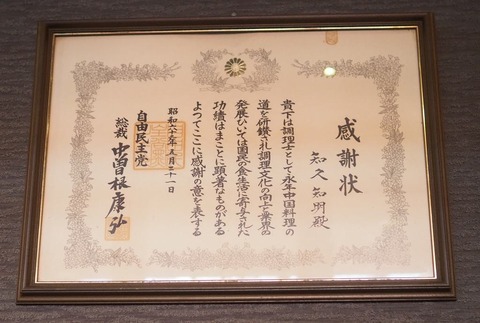 感謝状
知久知明殿
貴下は調理士として永年中国料理の
道を研鑚され調理文化の向上と業界の
発展ひいては国民の食生活に寄与された
功績はまことに顕著なものがある
よつてここに感謝の意を表する
昭和六十年五月二十一日
自由民主党
総裁 中曽根康弘